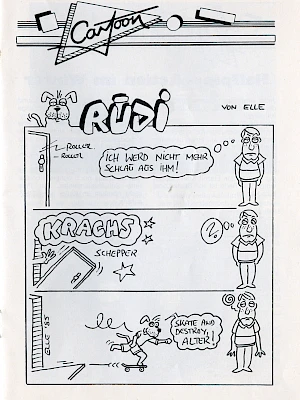 Cartoon
RÜDI
VON ELLE
ROLLER
ROLLER
ICH WERD NICHT MEHR
SCHLAU AUS IHM!
KRACHS
SCHEPPER
?
SKATE AND
DESTROY,
ALTER!
ELLE '85